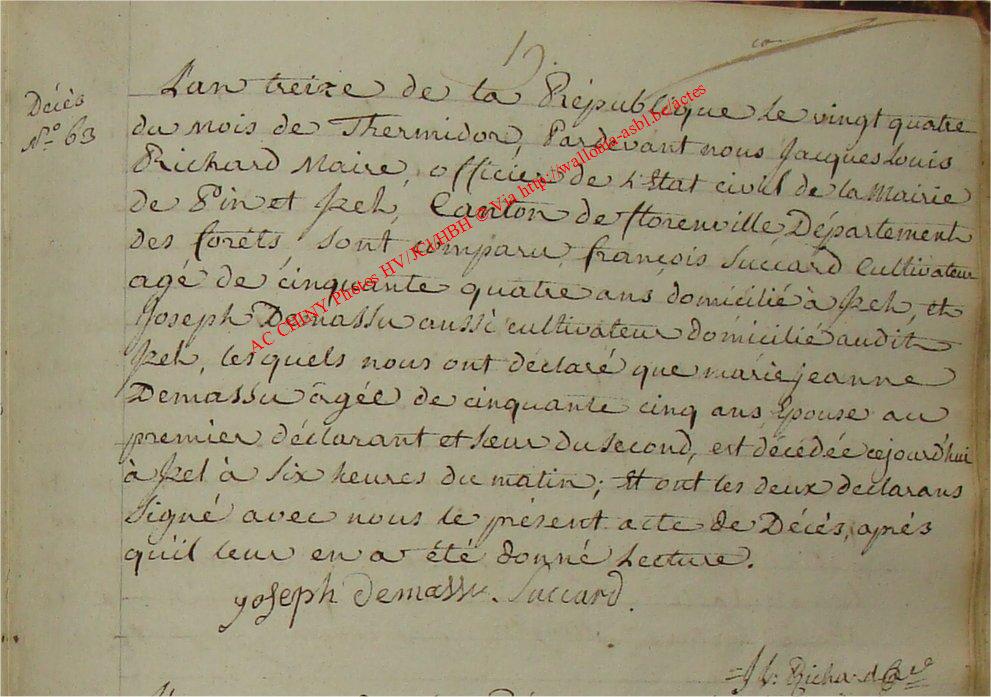 17.
Décès
N.o 63
L'an treize de la République le vingt quatre
du mois de Thermidor, Pardevant nous Jacques Louis
Richard Maire, officier de L'Etat civil de la Mairie
de Pin et Izel, Canton de florenville, Département
des forêts sont comparu, françois Juccard Cultivateur
agé de cinquante quatre ans domicilié à Izel, et
Joseph Demassu aussi cultivateur domicilié audit
Izel, lesquels nous ont déclaré que marie jeanne
Demassu âgée de cinquante cinq ans, Epouse au
premier déclarant et sœur du second, est décédée cejourd'hui
à Izel à six heures du matin; Et ont les deux declarans
Signé avec nous le présent acte de Décès, après
qu'il leur en a été donné Lecture.
yoseph demassu. Juccard.
AC CHINY Photos HV/JCI/HBH © Via http://wallonia-asbl.be/actes